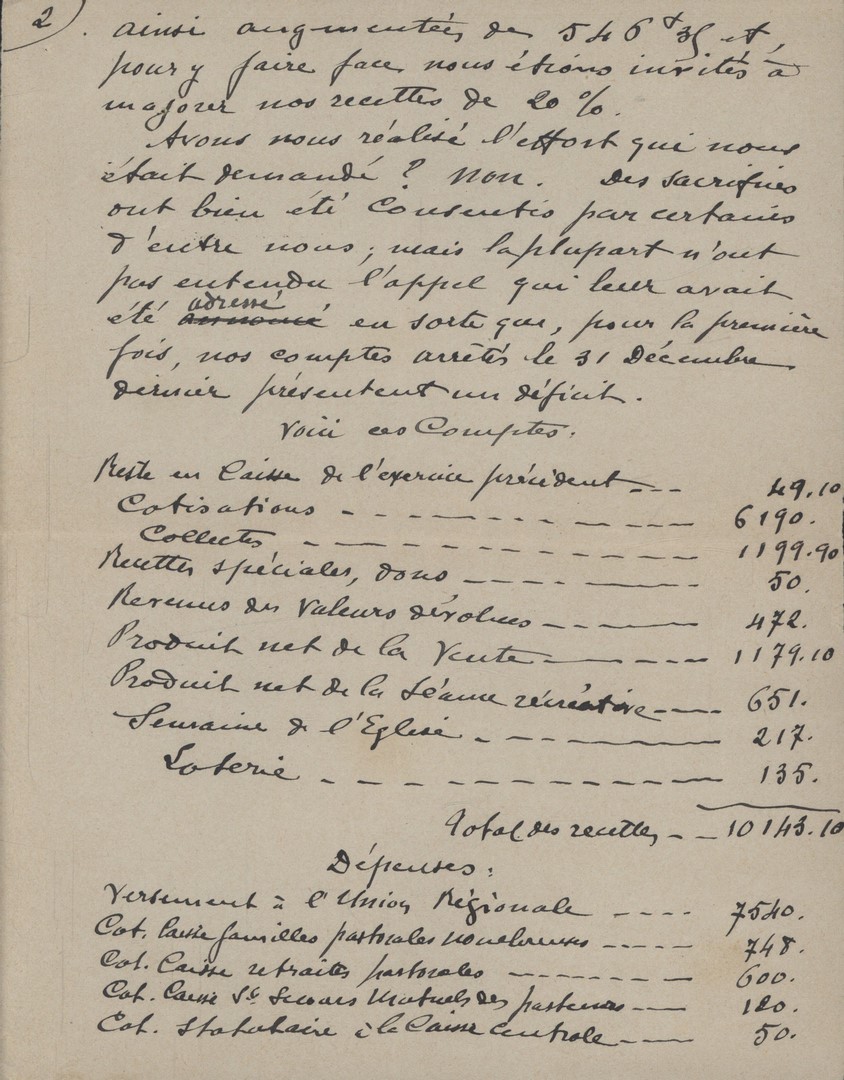 2
ainsi augmentées de 546 f 35 et,
pour y faire face, nous étions invités à
majorer nos recettes de 20 %.
Avons nous réalisé l'effort qui nous
était demandé ? Non. Des sacrifices
ont bien été consentis par certains
d'entre nous ; mais la plupart n'ont
pas entendu l'appel qui leur avait
été annoncé adressé en sorte que, pour la première
fois, nos comptes arrêtés le 31 Décembre
dernier présentent un déficit.
Voici ces Comptes :
Reste en Caisse de l'exercice précédent --- 49.10
Cotisations - - - - - - - - 6190.
Collectes - - - - - - - - 1199.90
Recettes spéciales, dons - - - - - 50.
Revenus des Valeurs dévolues - - - - 472.
Produit net de la Vente - - - - 1179.10
Produit net de la Séance récréative - - - 651.
Semaine de l'Eglise - - - - - - 217.
Loterie - - - - - - - - 135.
Total des recettes - - 10143.10
Dépenses :
Versement à l'Union Régionale - - - - 7540.
Cot. Caisse familles pastorales nombreuses - - - - - 748.
Cot. Caisse retraites pastorales - - - - - - 600.
Cot. Caisse Sté Secours Mutuels des pasteurs - - - 120.
Cot. statutaire à la Caisse centrale - - - - 50.